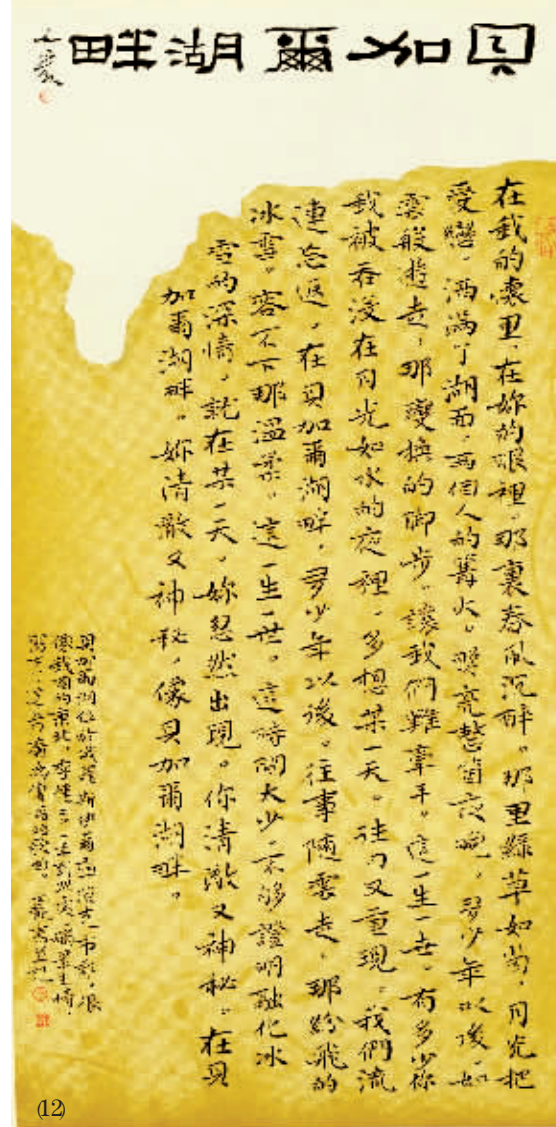 貝加爾湖畔
在我的懷里、在妳的眼裡。那裏春風沉醉。那里綠草如茵。月光把
愛戀。洒滿了湖面。兩個人的篝火。照亮整個夜晚。多少年以後。如
雲般遊走。那變換的脚步。讓我們難牽手。這一生一世。有多少你
我被吞没在月光如水的夜裡。多想某一天。往日又重現。我們流
連忘返。在貝加爾湖畔。多少年以後。往事隨雲走。那紛飛的
冰雪。容不下那溫柔。這一生一世。這時間太少。不够證明融化冰
雪的深情。就在某一天。妳忽然出現。你清澈又神秘。在貝
加爾湖畔。妳清澈又神秘。像貝加爾湖畔。
貝加爾湖位於俄羅斯伊爾
(12)